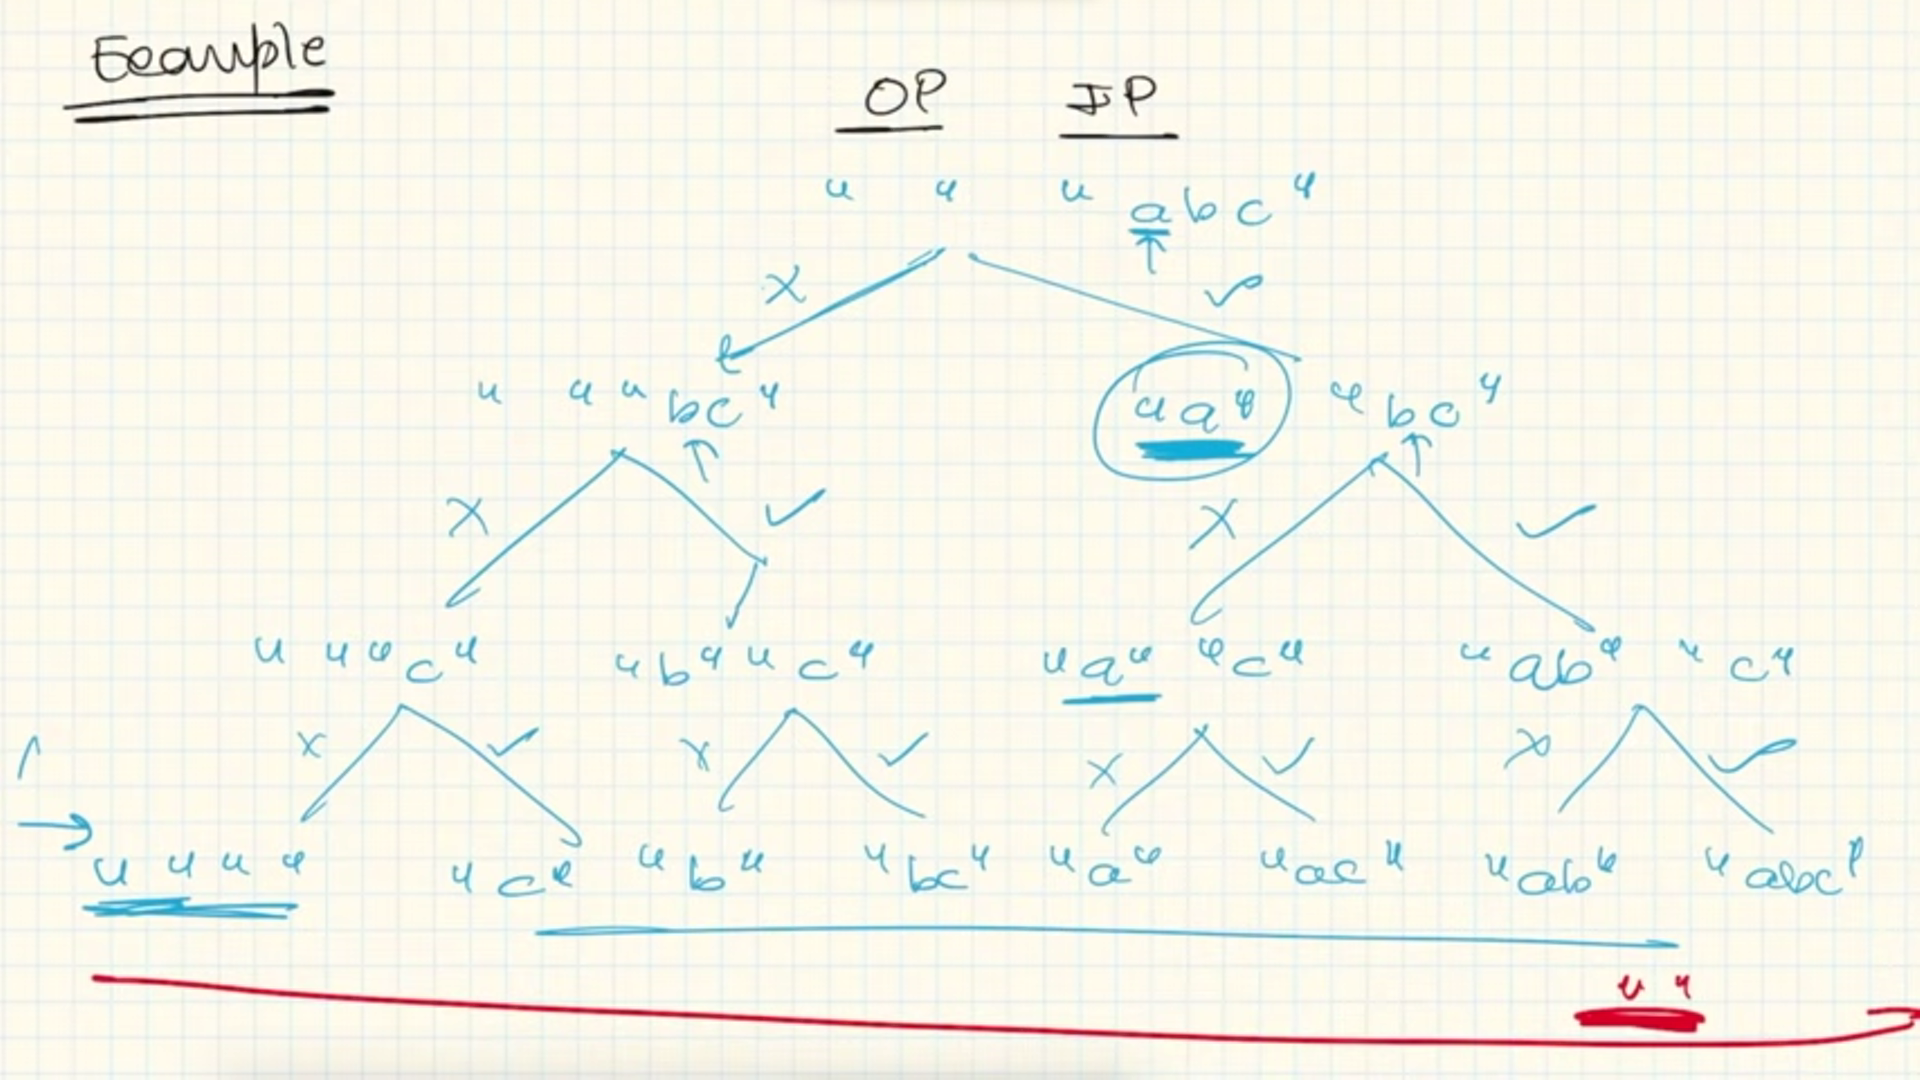 Example
OP IP
" " "abc"
X ✓
" " "bc" "a" "bc"
X ✓ X ✓
" " "c" "b" "c" "a" "c" "ab" "c"
X ✓ X ✓ X ✓ X ✓
" " " " "c" "b" "bc" "a" "ac" "ab" "abc"
" "